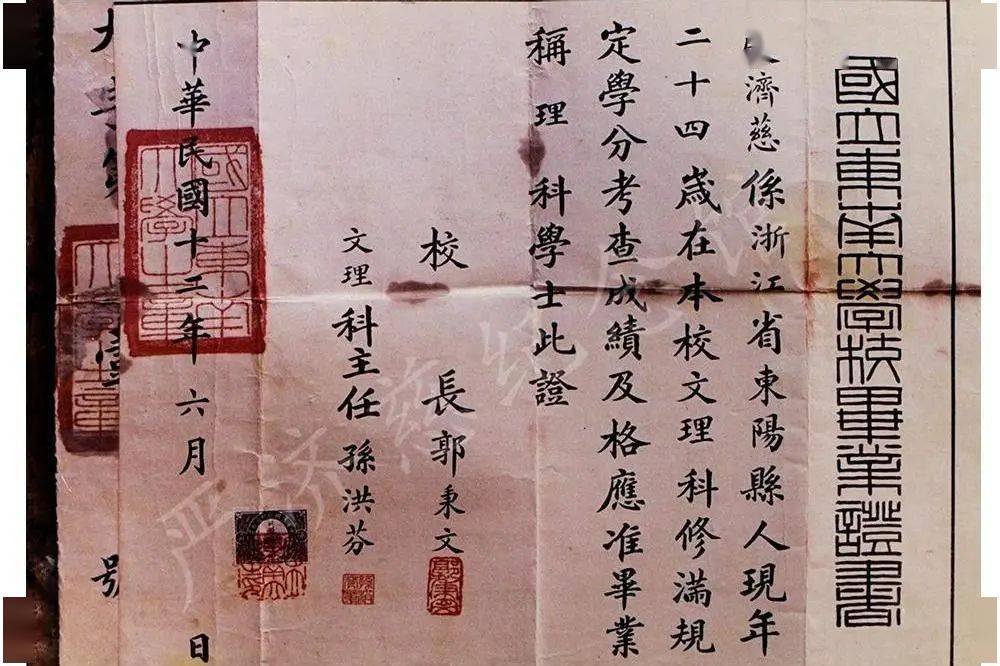 國立東南大學校畢業證書
濟慈係浙江省東陽縣人現年
二十四歲在本校文理科修滿規
定學分考查成績及格應准畢業
稱理科學士此證
校長郭秉文
文理科主任孫洪芬
中華民國十二年六月 日
國立東南
大學之章
大
號
严济慈纪念馆